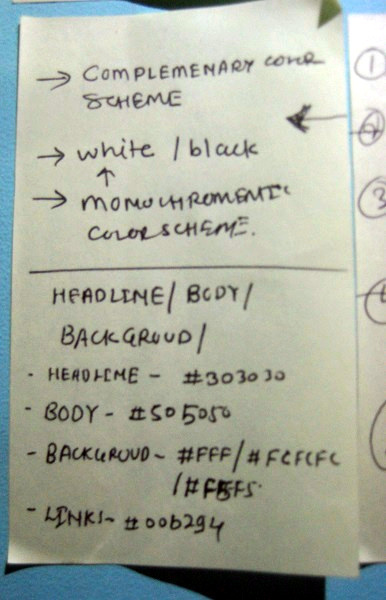 → COMPLEMENARY COLOR
SCHEME
→ white / black
↑
→ MONOCHROMENTIC
COLORSCHEME.
HEADLINE/ BODY/
BACKGROUD/
- HEADLINE - #303030
- BODY - #505050
- BACKGROUD - #FFF/#FCFCFC
/#F5F5
- LINKS - #00b294
1
3